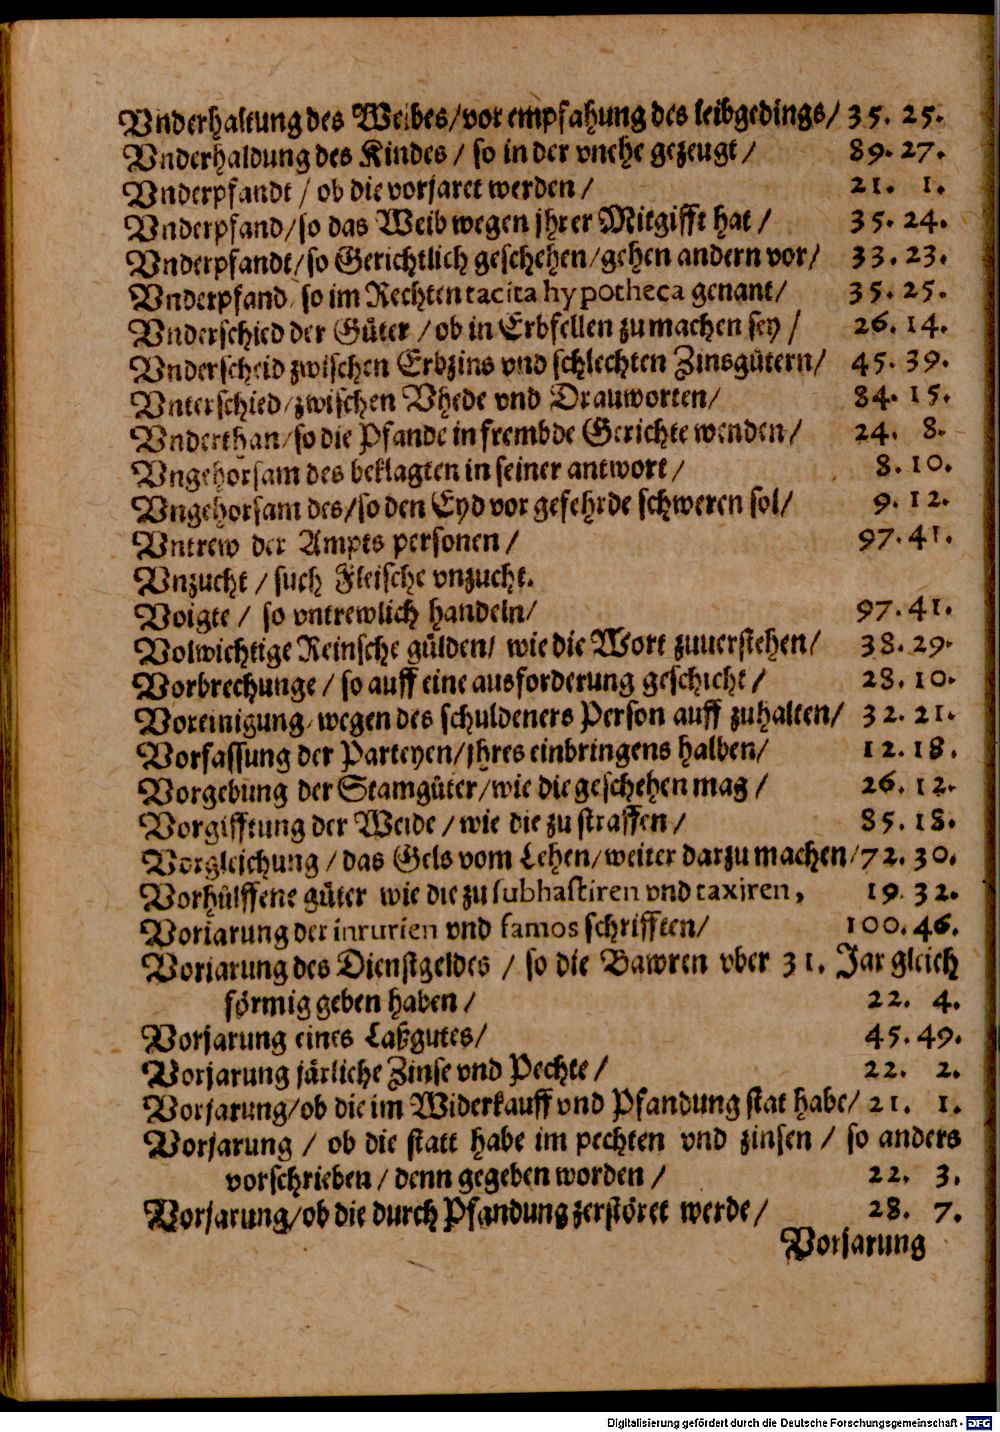 Vnderhaltung des Weibes/vor empfahung des leibgedings/ 35. 25.
Vnderhaldung des Kindes / so in der vnehe gezeugt / 89. 27.
Vnderpfandt / ob die vorjaret werden / 21. 1.
Vnderpfand/so das Weib wegen jhrer Mitgifft hat / 35. 24.
Vnderpfandt/so Gerichtlich geschehen/gehen andern vor/ 33. 23.
Vnderpfand/so im Rechten tacita hypotheca genant/ 35. 25.
Vnderschied der Güter / ob in Erbfellen zu machen sey / 26. 14.
Vnderscheid zwischen Erbzins vnd schlechten Zinsgütern/ 45. 39.
Vnterschied/zwischen Vhede vnd Drauworten/ 84. 15.
Vnderthan/so die Pfande in frembde Gerichte wenden/ 24. 8.
Vngehorsam des beklagten in seiner antwort / 8. 10.
Vngehorsam des/so den Eyd vor gefehrde schweren sol/ 9. 12.
Vntrew der Ampts personen / 97. 41.
Vnzucht / such Fleische vnzucht.
Voigte / so vntrewlich handeln/ 97. 41.
Volwichtige Reinsche gülden/ wie die Wort zuuerstehen/ 38. 29.
Vorbrechunge / so auff eine ausforderung geschicht / 28. 10.
Voreinigung/wegen des schuldeners Person auff zuhalten/ 32. 21.
Vorfassung der Parteyen/jhres einbringens halben/ 12. 18.
Vorgebung der Stamgüter/wie die geschehen mag / 26. 12.
Vorgifftung der Weide / wie die zu straffen / 85. 18.
Vorgleichung / das Gels vom Lehen/weiter darzu machen/72. 30.
Vorhülffene güter wie die zu subhastiren vnd taxiren, 19. 32.
Voriarung der inrurien vnd famos schrifften/ 100. 46.
Voriarung des Dienstgeldes / so die Bawren vber 31. Jar gleich
förmig geben haben / 22. 4.
Vorjarung eines Laßgutes/ 45. 49.
Vorjarung järliche Zinse vnd Pechte / 22. 2.
Vorjarung/ob die im Widerkauff vnd Pfandung stat habe/ 21. 1.
Vorjarung / ob die statt habe im pechten vnd zinsen / so anders
vorschrieben / denn gegeben worden / 22. 3.
Vorjarung/ob die durch Pfandung zerstöret werde/ 28. 7.
Vorjarung
Digitalisierung gefördert durch die Deutsche Forschungsgemeinschaft - DFG